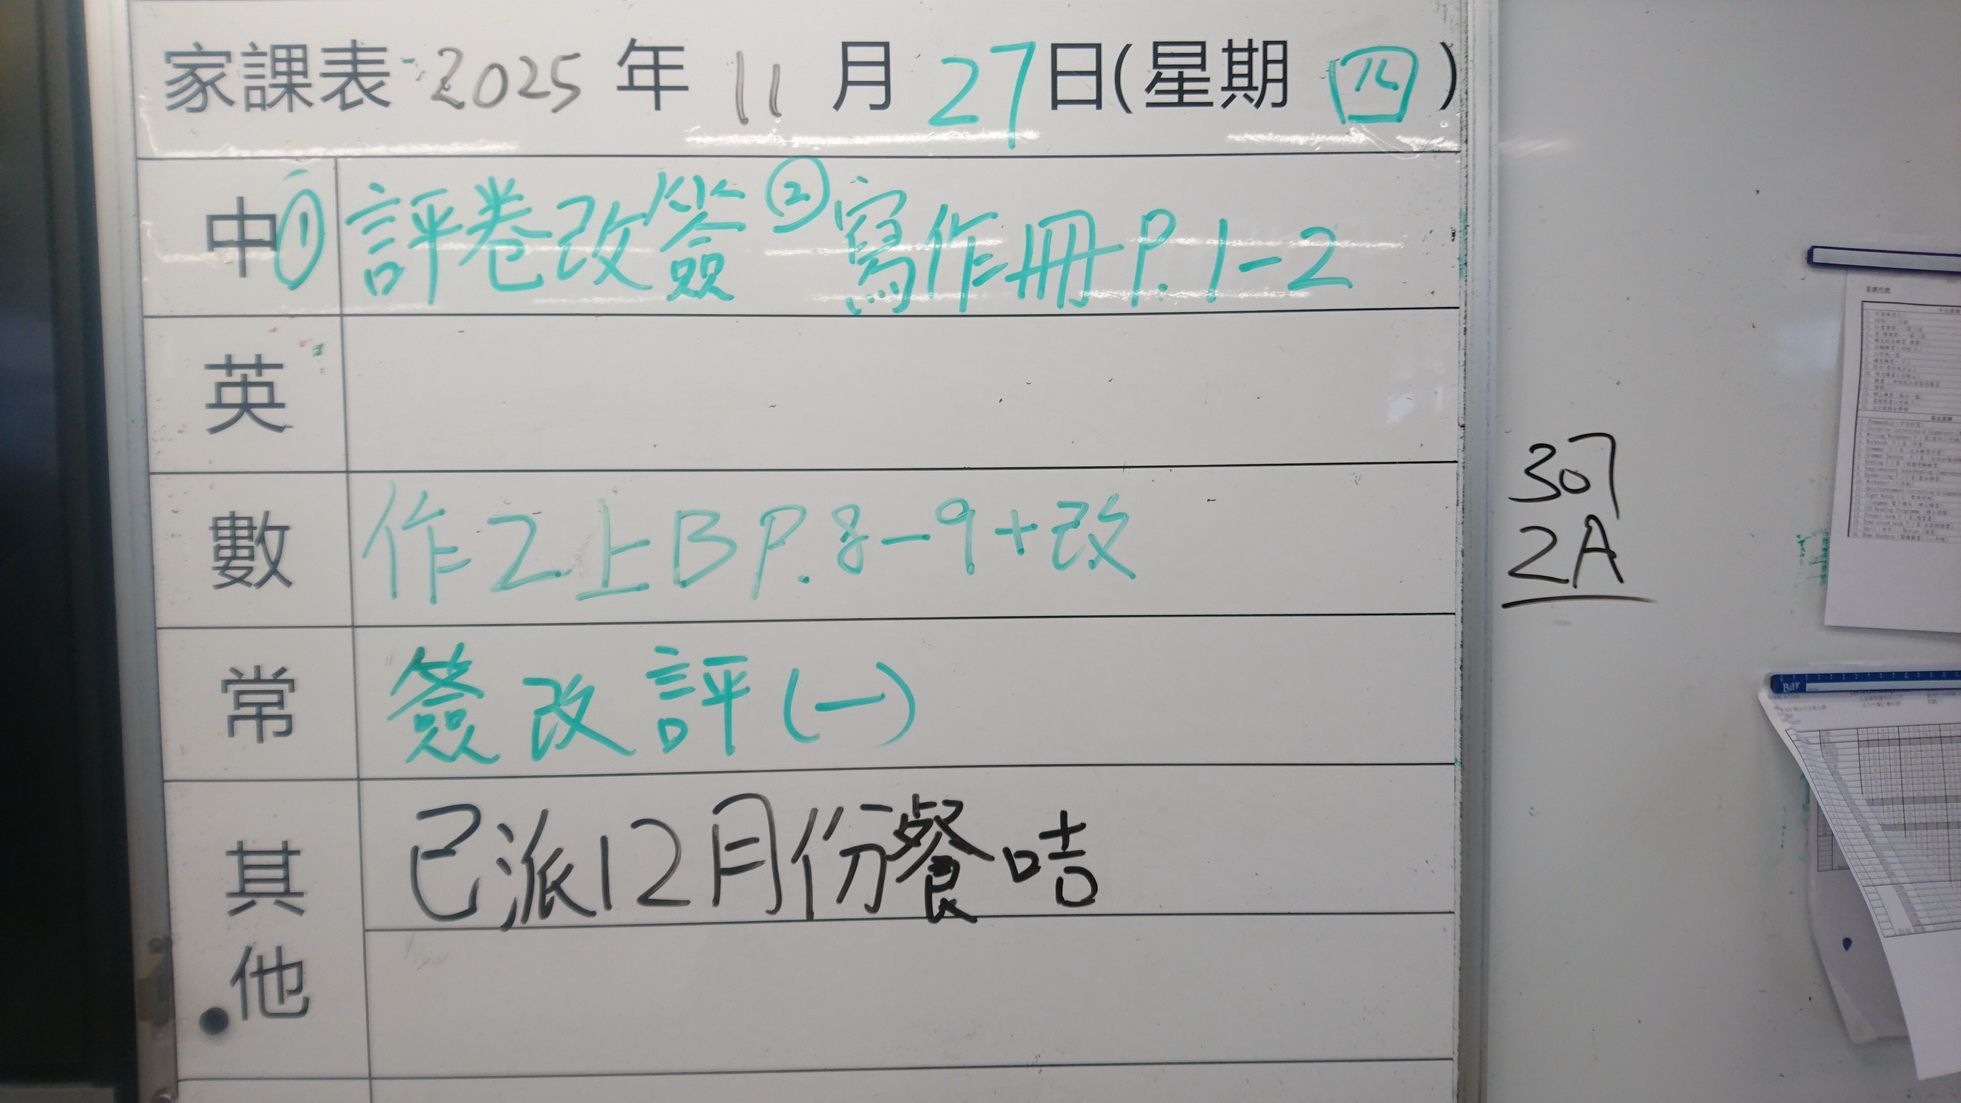 家課表 2025 年 11 月 27 日(星期 四)
中 ① 評卷改簽 ② 寫作冊 P.1-2
英
數 作2上B P.8-9+改
常 簽改評(一)
其他 已派12月份餐咭
307
2A
Bar